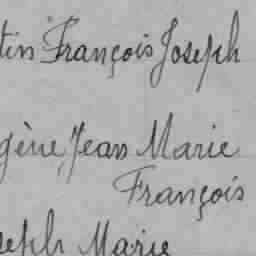 tin François Joseph
gène, Jean Marie
François
seph Marie